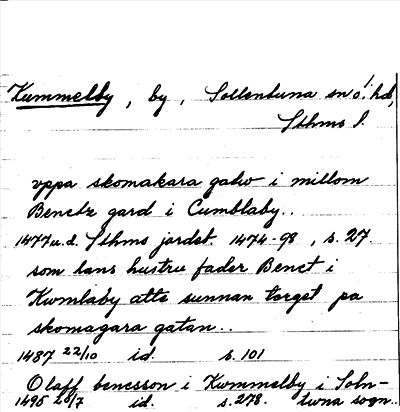 Kummelby, by, Sollentuna sn o. hd,
Sthms l.
vppa skomakara gatw i millom
Benctz gard i Cumblaby..
1477 u.d. Sthms jordeb. 1474-98, s. 27.
som lans hustru fader Benct i
Kwmlaby atte sunnan torget pa
skomagara gatan..
1487 22/10 id. s. 101
Olaff benesson i Kwmmelby i Soln-
1495 28/7 id. s. 278. twna sogn..